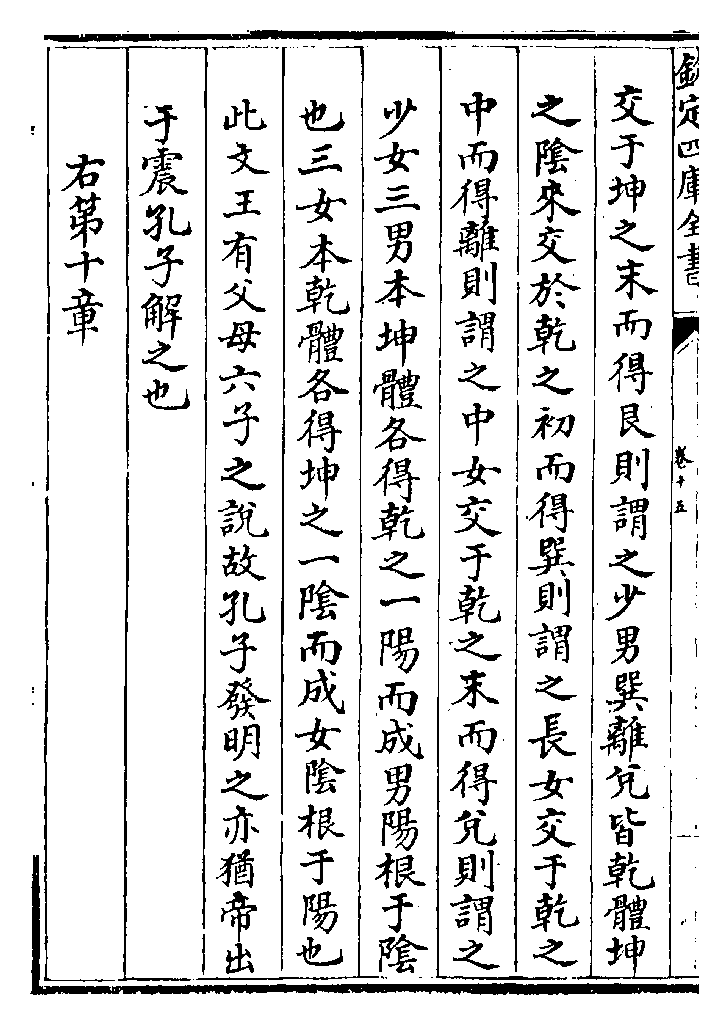 欽定四庫全書
卷十五
交于坤之末而得艮則謂之少男巽離兌皆乾體坤
之陰來交於乾之初而得巽則謂之長女交于乾之
中而得離則謂之中女交于乾之末而得兌則謂之
少女三男本坤體各得乾之一陽而成男陽根于陰
也三女本乾體各得坤之一陰而成女陰根于陽也
此文王有父母六子之說故孔子發明之亦猶帝出
于震孔子解之也
右第十章